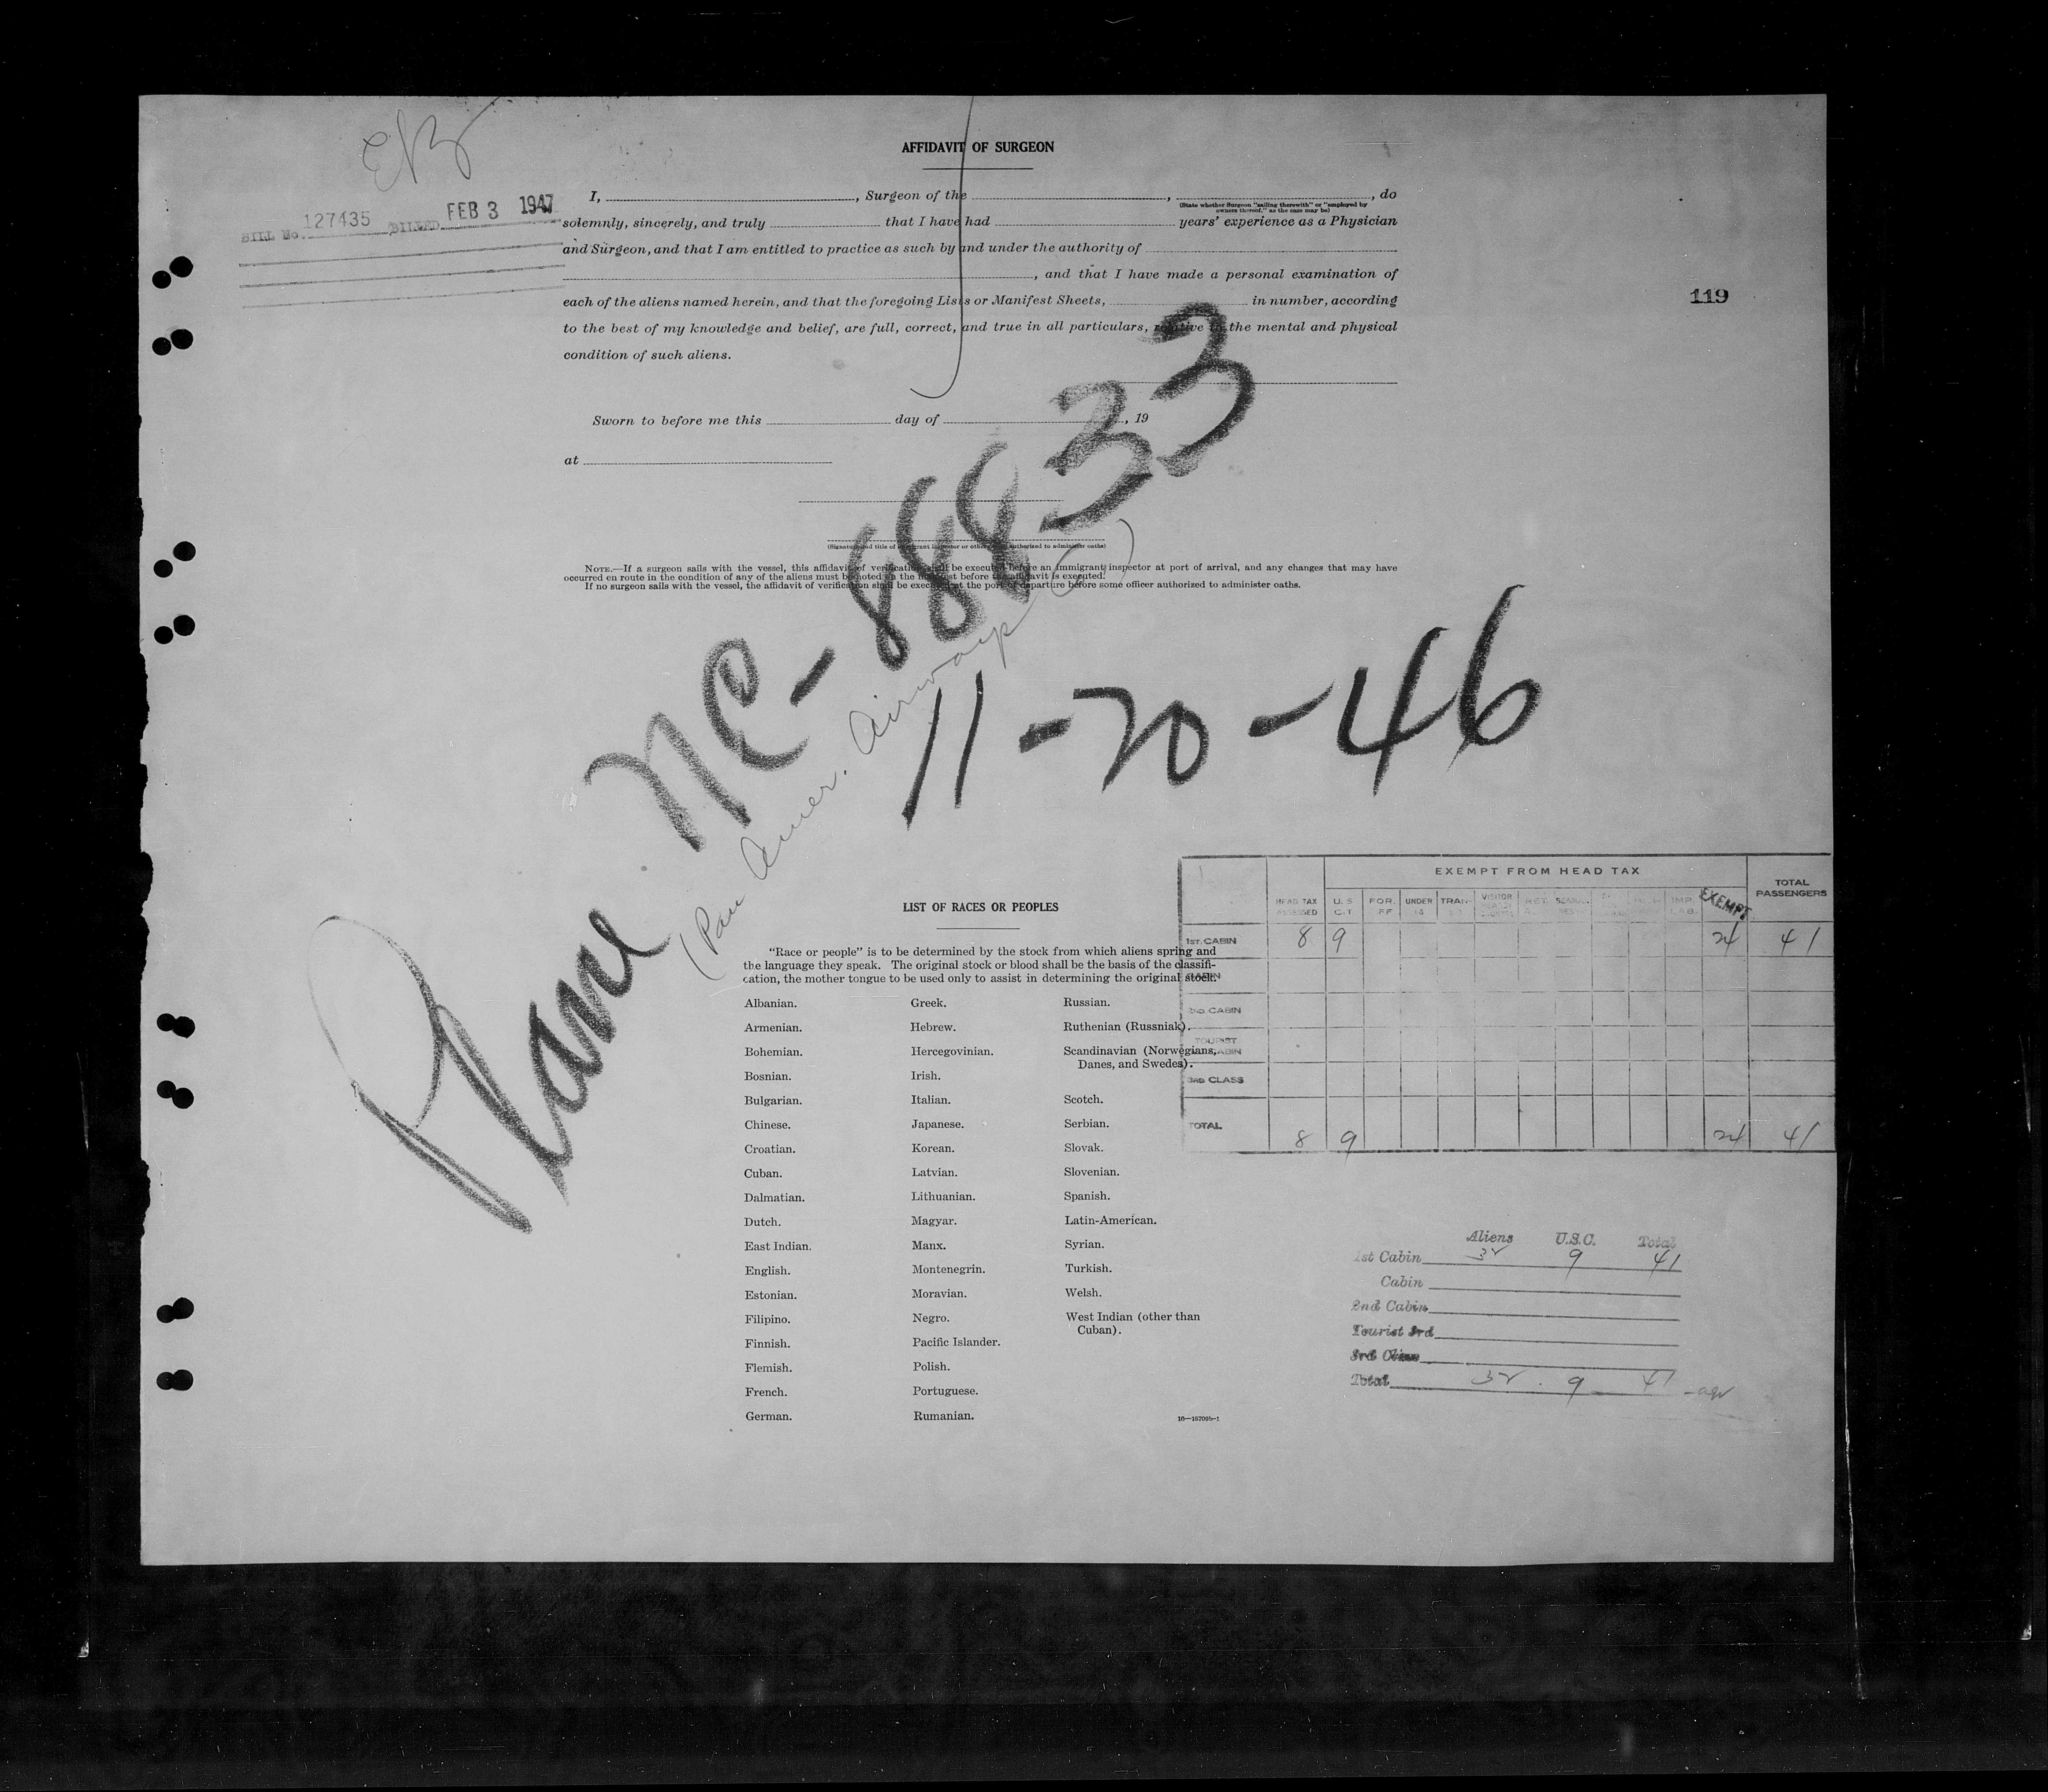 AFFIDAVIT OF SURGEON
I, , Surgeon of the , , do
(State whether Surgeon "sailing therewith" or "employed by
owners thereof," as the case may be)
BILL No. 127435 BILLED FEB 3 1947
solemnly, sincerely, and truly that I have had years' experience as a Physician
and Surgeon, and that I am entitled to practice as such by and under the authority of
, and that I have made a personal examination of
each of the aliens named herein, and that the foregoing Lists or Manifest Sheets, in number, according
119
to the best of my knowledge and belief, are full, correct, and true in all particulars, relative to the mental and physical
condition of such aliens.
Sworn to before me this day of , 19
at
(Signature and title of immigrant inspector or other officer authorized to administer oaths)
NOTE.—If a surgeon sails with the vessel, this affidavit of verification shall be executed before an immigrant inspector at port of arrival, and any changes that may have
occurred en route in the condition of any of the aliens must be noted on the manifest before the affidavit is executed.
If no surgeon sails with the vessel, the affidavit of verification shall be executed at the port of departure before some officer authorized to administer oaths.
Plane NC-88833
(Pan Amer. Airways)
11-20-46
LIST OF RACES OR PEOPLES
"Race or people" is to be determined by the stock from which aliens spring and
the language they speak. The original stock or blood shall be the basis of the classifi-
cation, the mother tongue to be used only to assist in determining the original stock.
Albanian.
Armenian.
Bohemian.
Bosnian.
Bulgarian.
Chinese.
Croatian.
Cuban.
Dalmatian.
Dutch.
East Indian.
English.
Estonian.
Filipino.
Finnish.
Flemish.
French.
German.
Greek.
Hebrew.
Hercegovinian.
Irish.
Italian.
Japanese.
Korean.
Latvian.
Lithuanian.
Magyar.
Manx.
Montenegrin.
Moravian.
Negro.
Pacific Islander.
Polish.
Portuguese.
Rumanian.
Russian.
Ruthenian (Russniak).
Scandinavian (Norwegians,
Danes, and Swedes).
Scotch.
Serbian.
Slovak.
Slovenian.
Spanish.
Latin-American.
Syrian.
Turkish.
Welsh.
West Indian (other than
Cuban).
16—15709b-1
EXEMPT FROM HEAD TAX
HEAD TAX ASSESSED U.S. CIT FOR. UNDER TRAN- VISITOR IMP. LAB. EXEMPT TOTAL PASSENGERS
1ST. CABIN 8 9 24 41
CABIN
2ND CABIN
TOURIST CABIN
3RD CLASS
TOTAL 8 9 24 41
Aliens U.S.C. Total
1st Cabin 32 9 41
Cabin
2nd Cabin
Tourist 3rd
3rd Class
Total 32 9 41